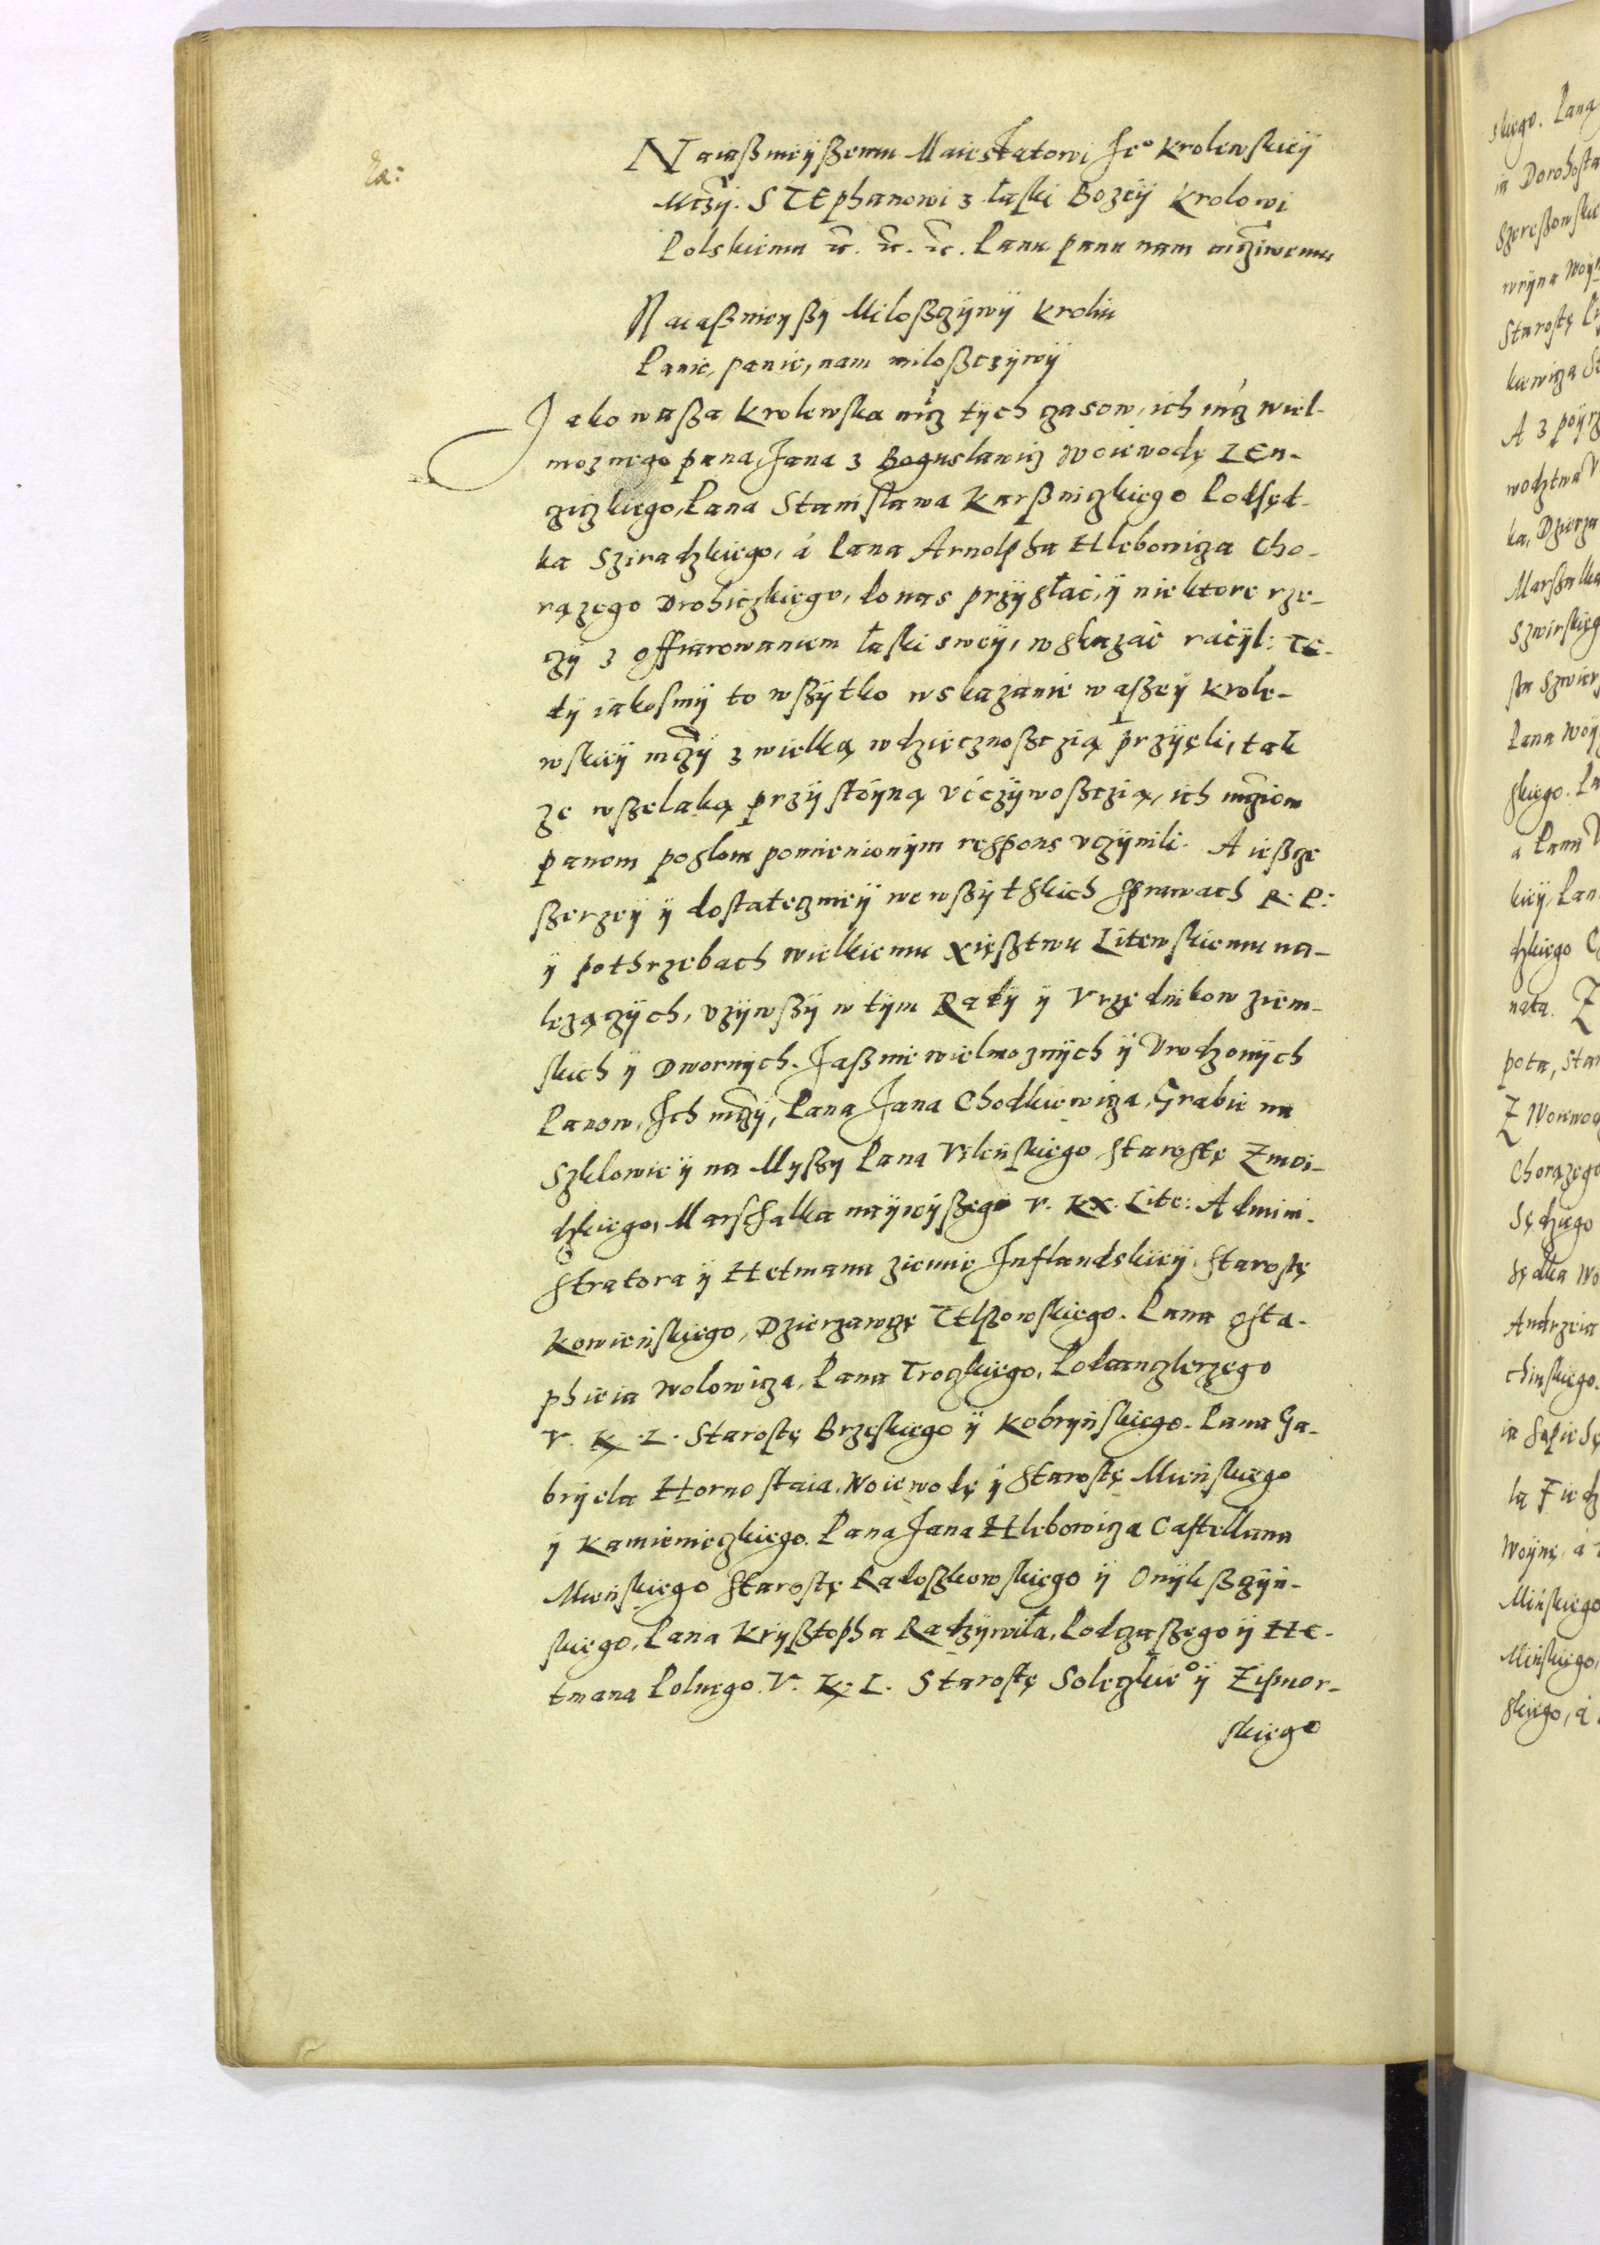 Naiaßnieÿßemu Maiestatowi Je° Krolewskieÿ
Mczÿ. STEphanowi z łaski Bozeÿ Krolowi
Polskiemu etc. etc. etc. Panu panu nam mcziwemu
Naiaßnieÿßÿ Miloßczÿwÿ Kroliu
Panie, panie, nam miloßczÿwÿ
Jako waßa Krolewska mcz tÿch czasow, ich mcz wiel-
moznego pana Jana z Boguslawicz Woiewodę LEn-
czÿczkiego, Pana Stanislawa Karßniczkiego Podsęd-
ka Sziradzkiego, á Pana Arnolpha Hlebowicza Cho-
rązego Drohiczkiego, do nas przÿsłać, ÿ niektore rze-
czÿ z offiarowaniem łaski sweÿ, wskazać raczÿl: Te-
dÿ iakosmÿ to wßÿtko wskazanie waßeÿ Krole-
wskieÿ mczÿ z wielką wdzięcznoßczią przÿięli, tak
ze wßelaką przÿstoÿną vczcÿwoßczią, ich mcziom
panom posłom pomienionÿm respons vczÿnili. A ießcze
ßerzeÿ ÿ dostateczneÿ we wßÿtskich sprawach R: P:
ÿ pothrzebach wielkiemu Xięßtwu Litewskiemu na-
lezączÿch, vzÿwßÿ w tÿm Radÿ ÿ Vrzędnikow ziem-
skich ÿ Dwornÿch. Jaßnie wielmoznÿch ÿ Vrodzonÿch
Panow, Jch mczÿ, Pana Jana Chodkiewicza, Grabie na
Szklowie ÿ na Mÿßÿ Pana Vileńskiego starostę Zmoi-
dzkiego, Marschalka naÿwÿßego V. KX. Lite: Admini-
stratora ÿ Hetmana ziemie Jnflandskieÿ, starostę
Kowieńskiego, Dzierzawczę TElßowskiego. Pana Osta-
phieia Wolowicza, Pana Troczkiego, Podcanczlerzego
V. K. L. Starostę Brzeskiego ÿ Kobrÿńskiego. Pana Ga-
brÿela Hornostaia, Woiewodę ÿ starostę Mieńskiego
ÿ Kamienieczkiego. Pana Jana Hlebowicza Castellana
Mieńskiego starostę Radoßkowskiego ÿ Onÿkßczÿń-
skiego, Pana Krÿßtopha Radzÿwiła, Podczaßego ÿ He-
tmana Polnego. V. K. L. Starostę Soleczkie° ÿ Zißmor-
skiego